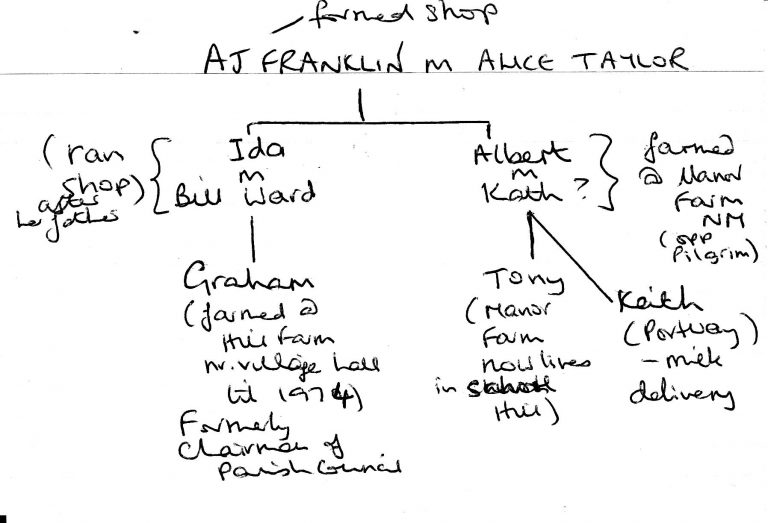 formed shop
AJ FRANKLIN m ALICE TAYLOR
(ran shop) after her father
Ida
m
Bill Ward
Albert
m
Kath ?
farmed
@ Manor
Farm
NM
(opp
Pilgrim)
Graham
(farmed @
Hill Farm
nr. village hall
til 1974)
Formerly
Chairman of
Parish Council
Tony
(Manor
Farm
now lives
in
Hill)
Keith
(Portway)
- milk
delivery